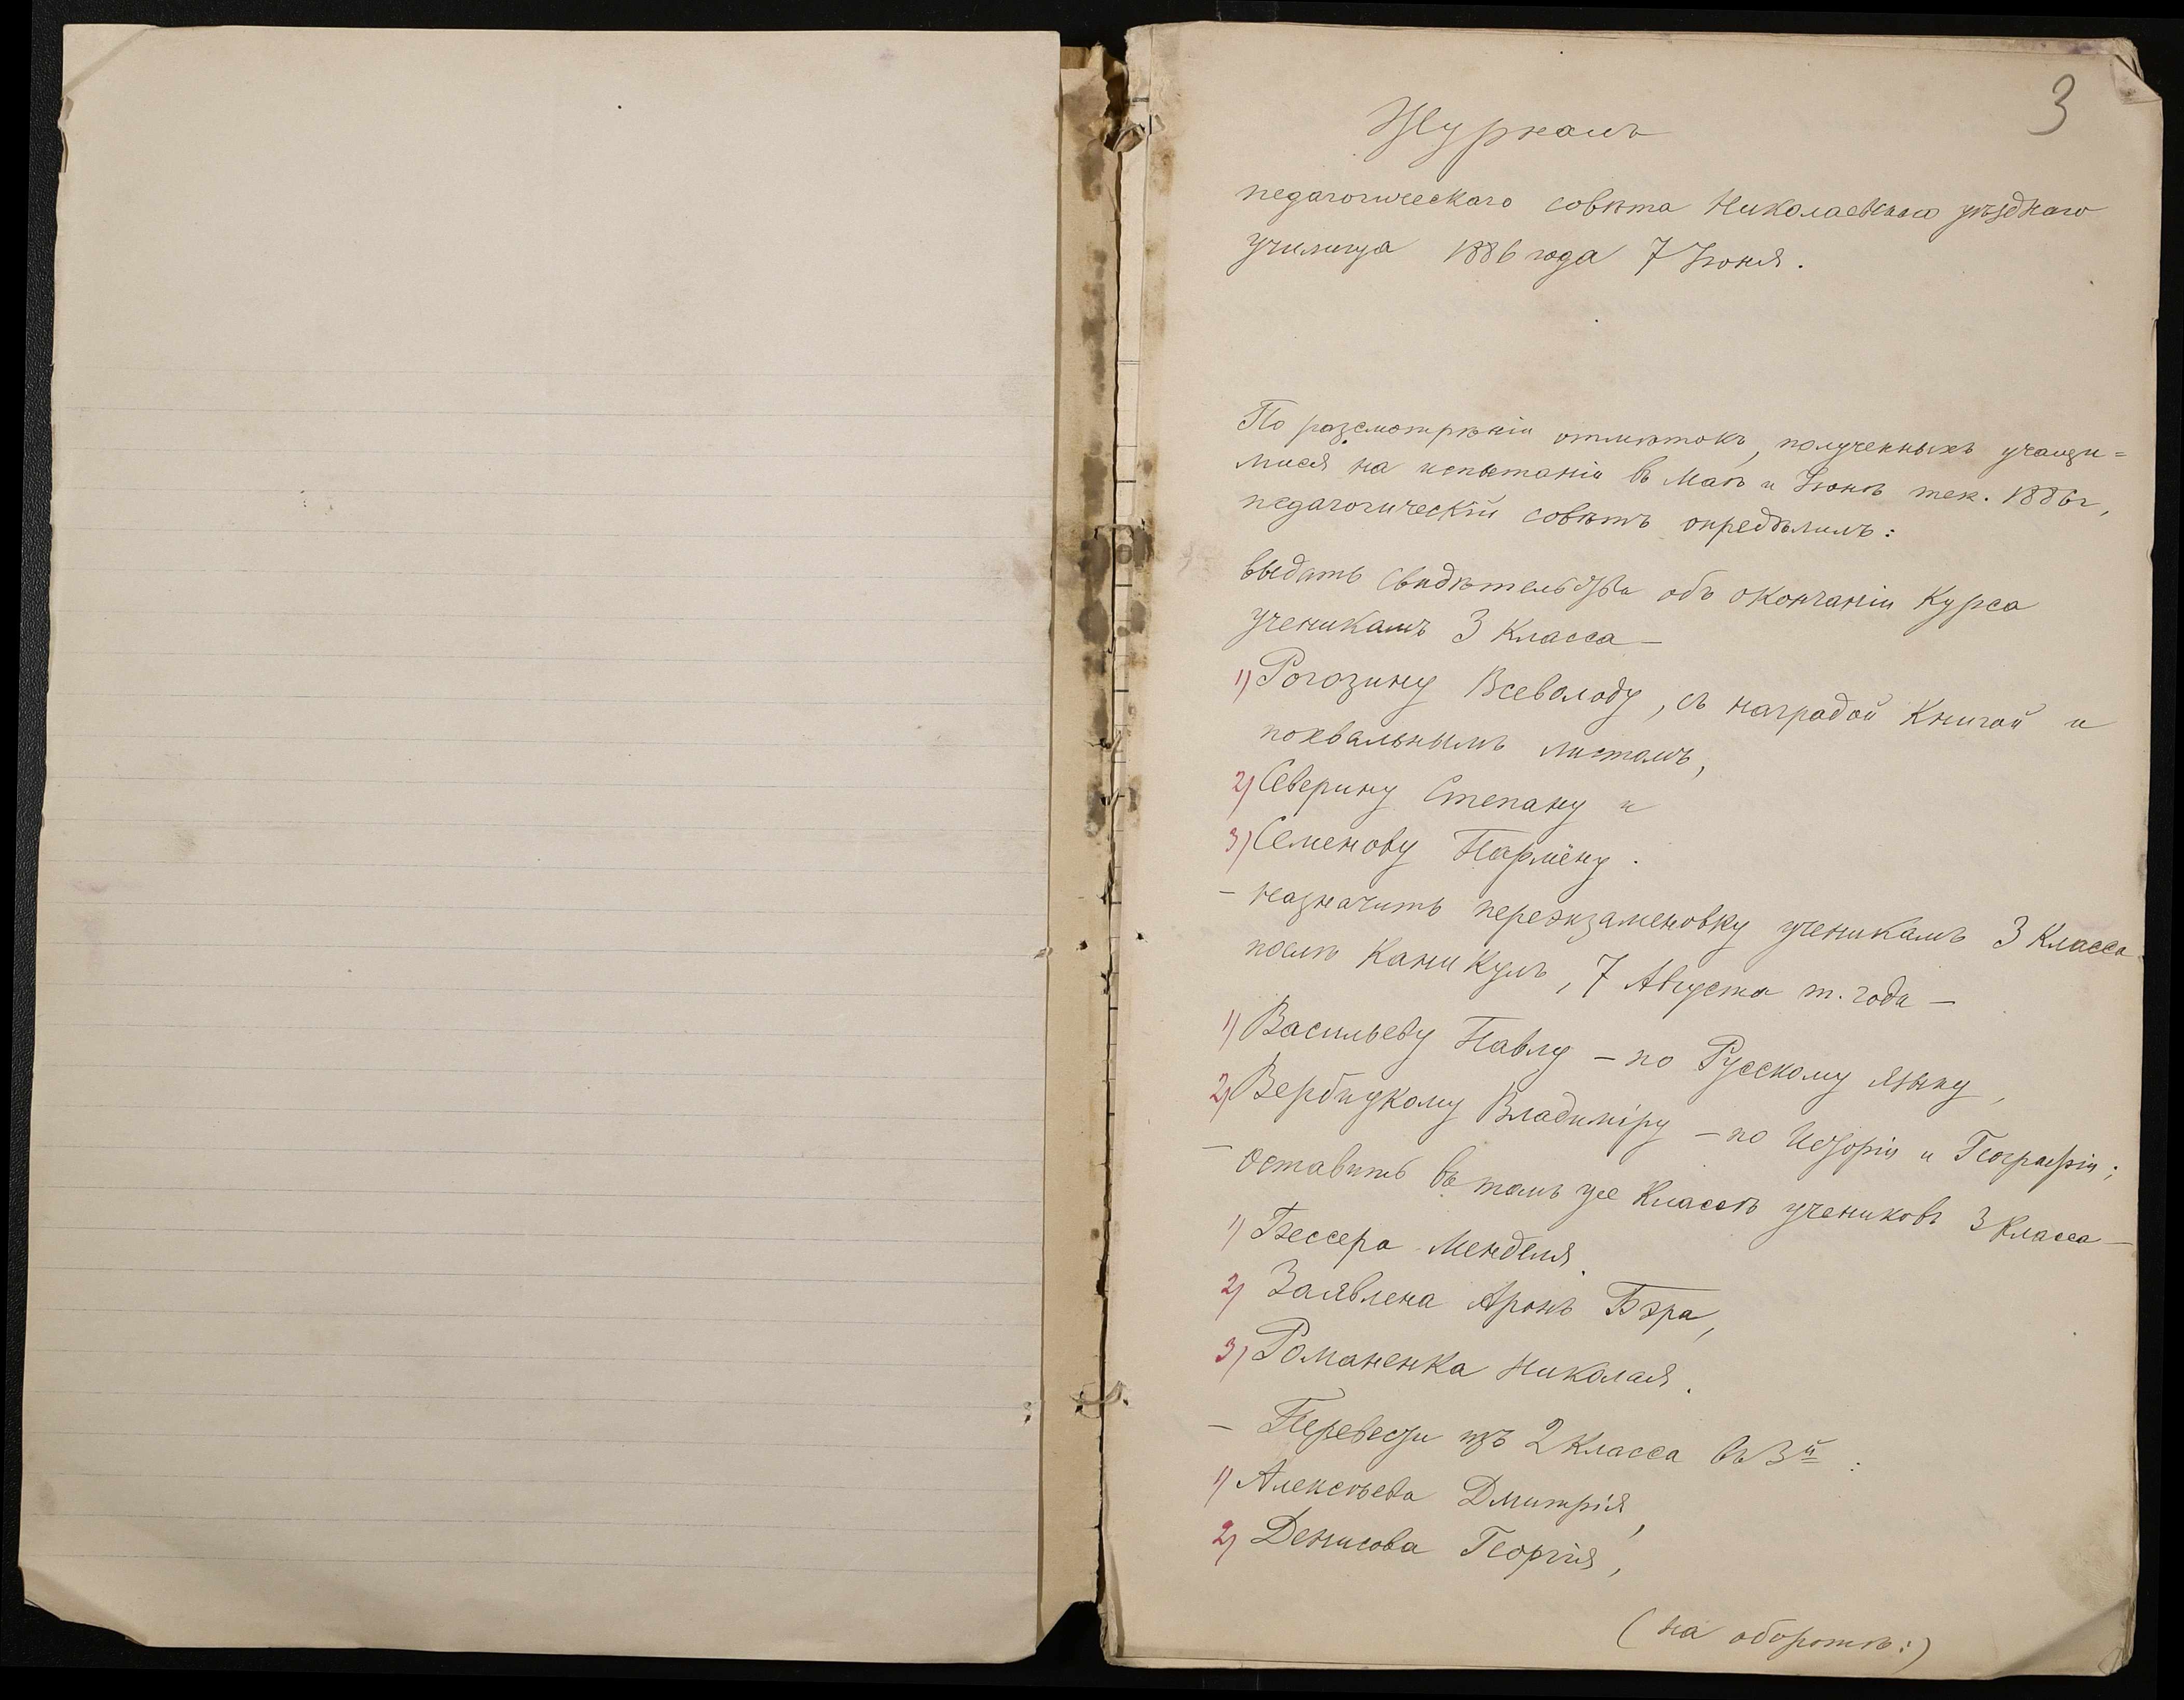 3
Журналъ
педагогическаго совѣта Николаевскаго уѣзднаго
училища 1886 года 7 Іюня.
По разсмотрѣніи отмѣтокъ, полученныхъ учащи=
мися на испытаніи въ Маѣ и Іюнѣ тек. 1886 г,
педагогическій совѣтъ опредѣлилъ:
выдать свидѣтельства объ окончаніи курса
ученикамъ 3 класса —
1) Рогозину Всеволоду, съ наградой книгой и
похвальнымъ листомъ,
2) Северину Степану и
3) Семенову Пармёну.
— назначить переэкзаменовку ученикамъ 3 класса
послѣ каникулъ, 7 Августа т. года —
1) Васильеву Павлу — по Русскому языку,
2) Вербицкому Владиміру — по Исторіи и Географіи;
— оставить въ томъ же классѣ учениковъ 3 класса —
1) Бессера Менделя.
2) Заявлена Аронъ Бэра,
3) Романенка Николая.
— Перевести изъ 2 класса въ 3й:
1) Алексѣева Дмитрія,
2) Денисова Георгія,
(на оборотѣ:)